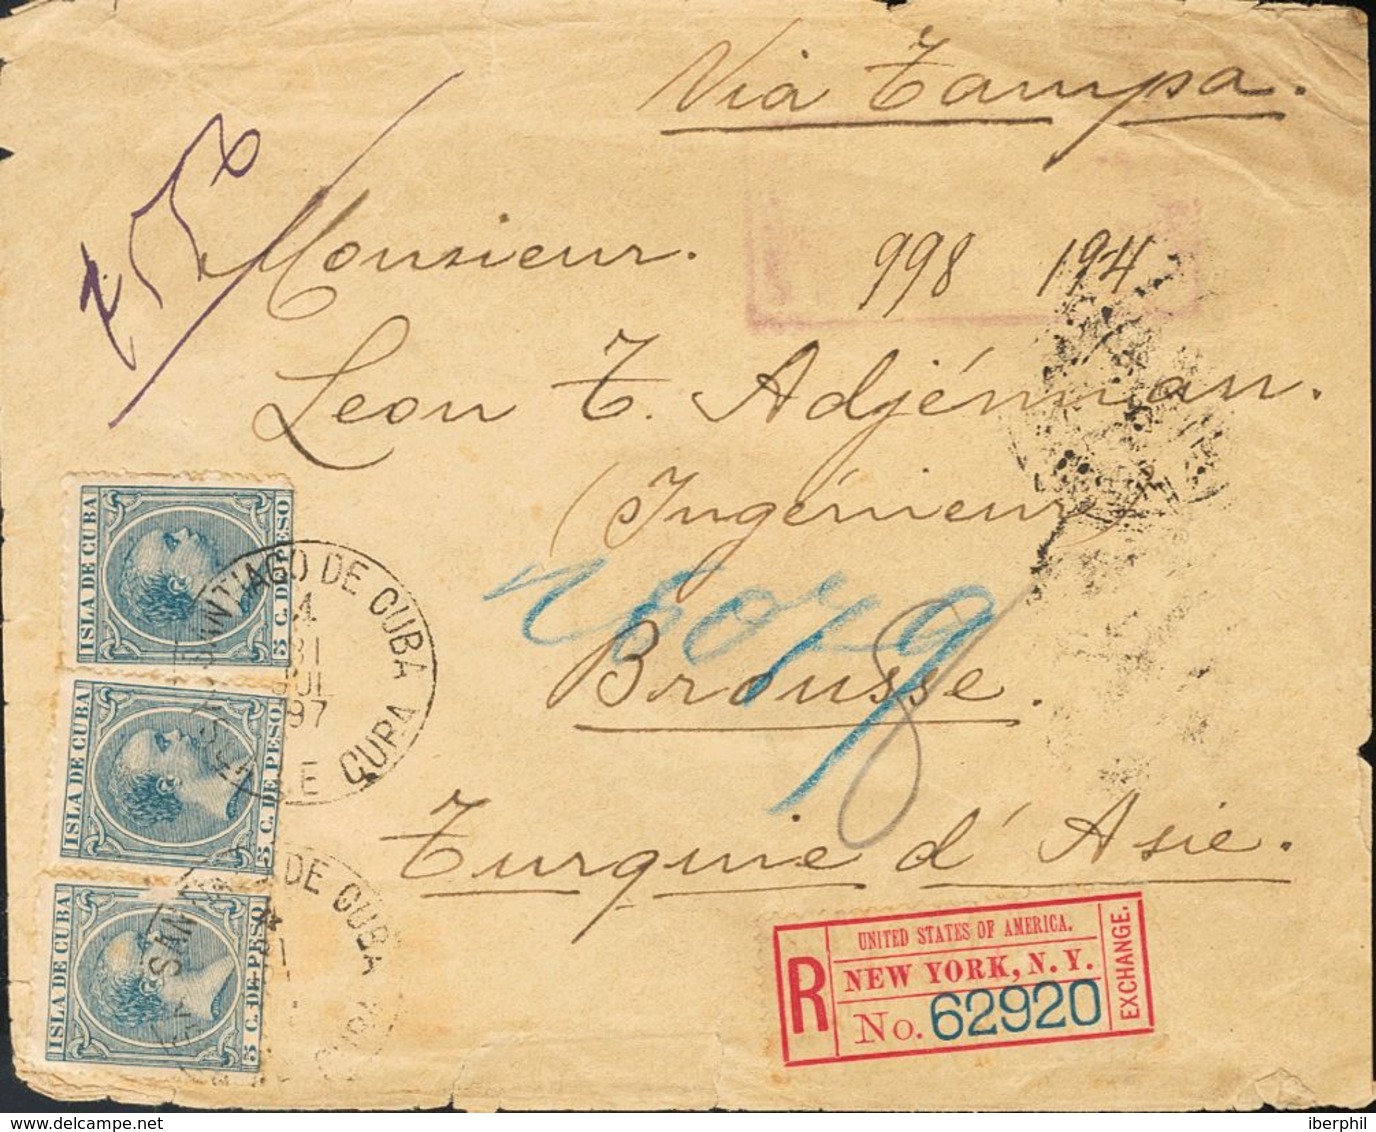 Via Tampa.
Monsieur.
998 194
Leon T. Adjémian.
(Ingénieur)
Brousse.
Turquie d'Asie.
ISLA DE CUBA
5 C. DE PESO
ISLA DE CUBA
5 C. DE PESO
ISLA DE CUBA
5 C. DE PESO
SANTIAGO DE CUBA
31
JUL
97
CUBA
DE CUBA
R
UNITED STATES OF AMERICA.
NEW YORK, N.Y.
No. 62920
EXCHANGE.
www.delcampe.net
iberphil